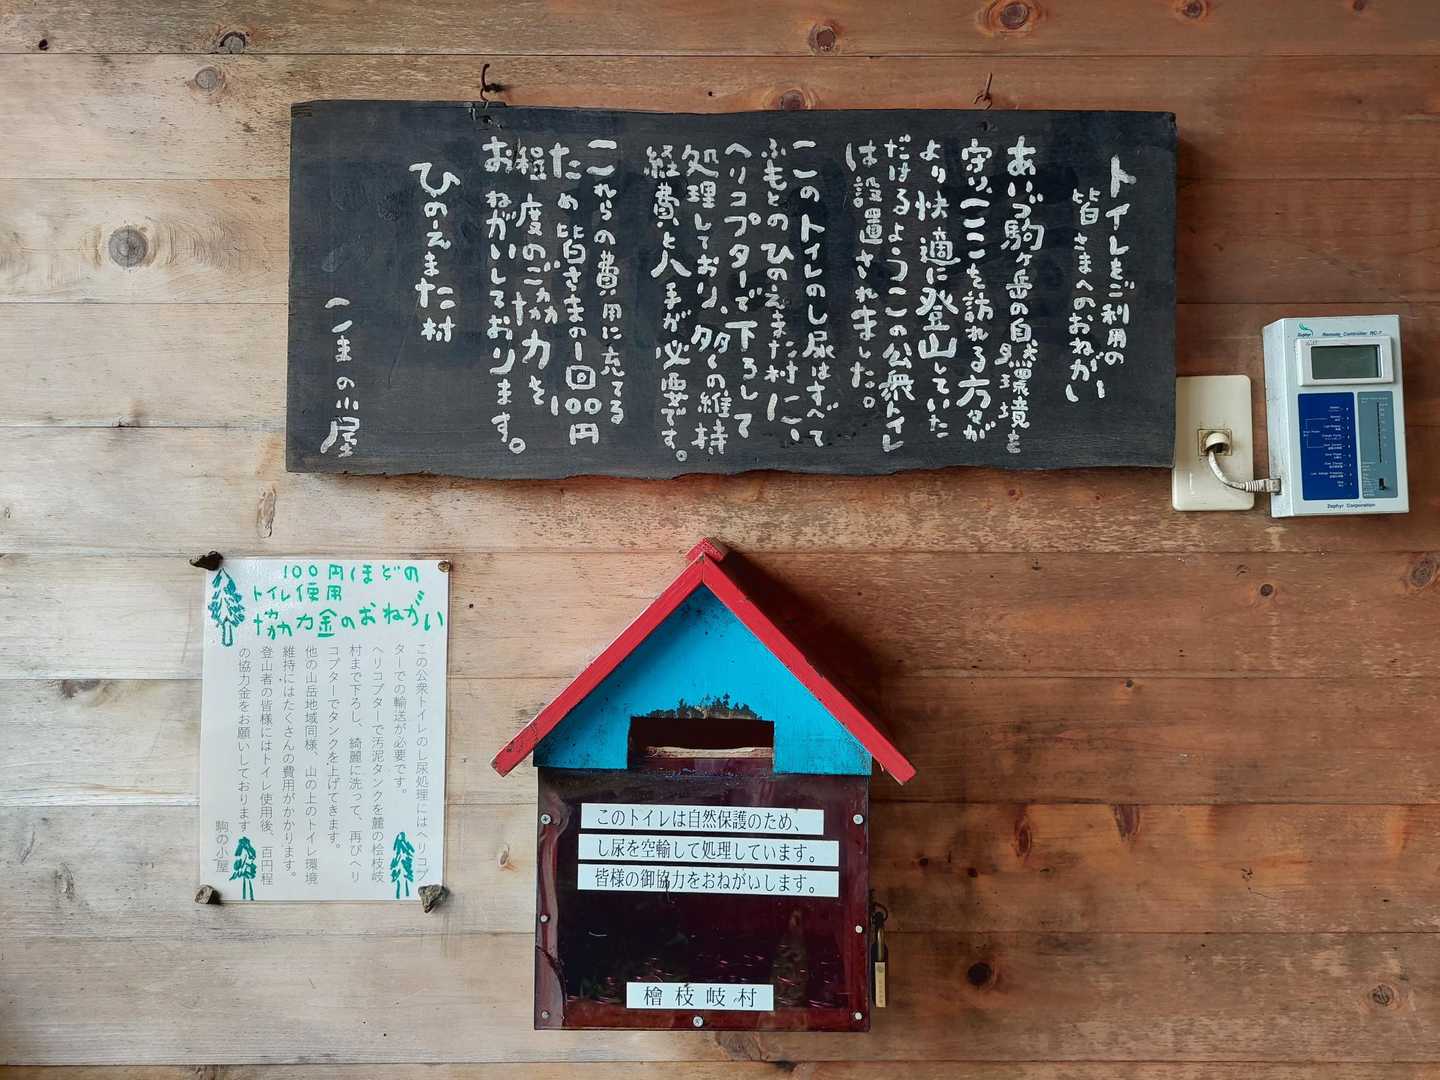 トイレをご利用の
皆さまへのおねがい
あいづ駒ヶ岳の自然環境を
守り、ここを訪れる方々が
より快適に登山していた
だけるようこの公衆トイレ
は設置されました。
このトイレのし尿はすべて
ふもとのひのえまた村に、
ヘリコプターで下ろして
処理しており、多くの維持
経費と人手が必要です。
これらの費用に充てる
ため皆さまの一回100円
程度のご協力を
おねがいしております。
ひのえまた村
こまの小屋
Zephyr
Remote Controller RC-7
Zephyr Corporation
100円ほどの
トイレ使用
協力金のおねがい
この公衆トイレのし尿処理にはヘリコプ
ターでの輸送が必要です。
ヘリコプターで汚泥タンクを麓の桧枝岐
村まで下ろし、綺麗に洗って、再びヘリ
コプターでタンクを上げてきます。
他の山岳地域同様、山の上のトイレ環境
維持にはたくさんの費用がかかります。
登山者の皆様にはトイレ使用後、百円程
の協力金をお願いしております
駒の小屋
このトイレは自然保護のため、
し尿を空輸して処理しています。
皆様の御協力をおねがいします。
檜枝岐村